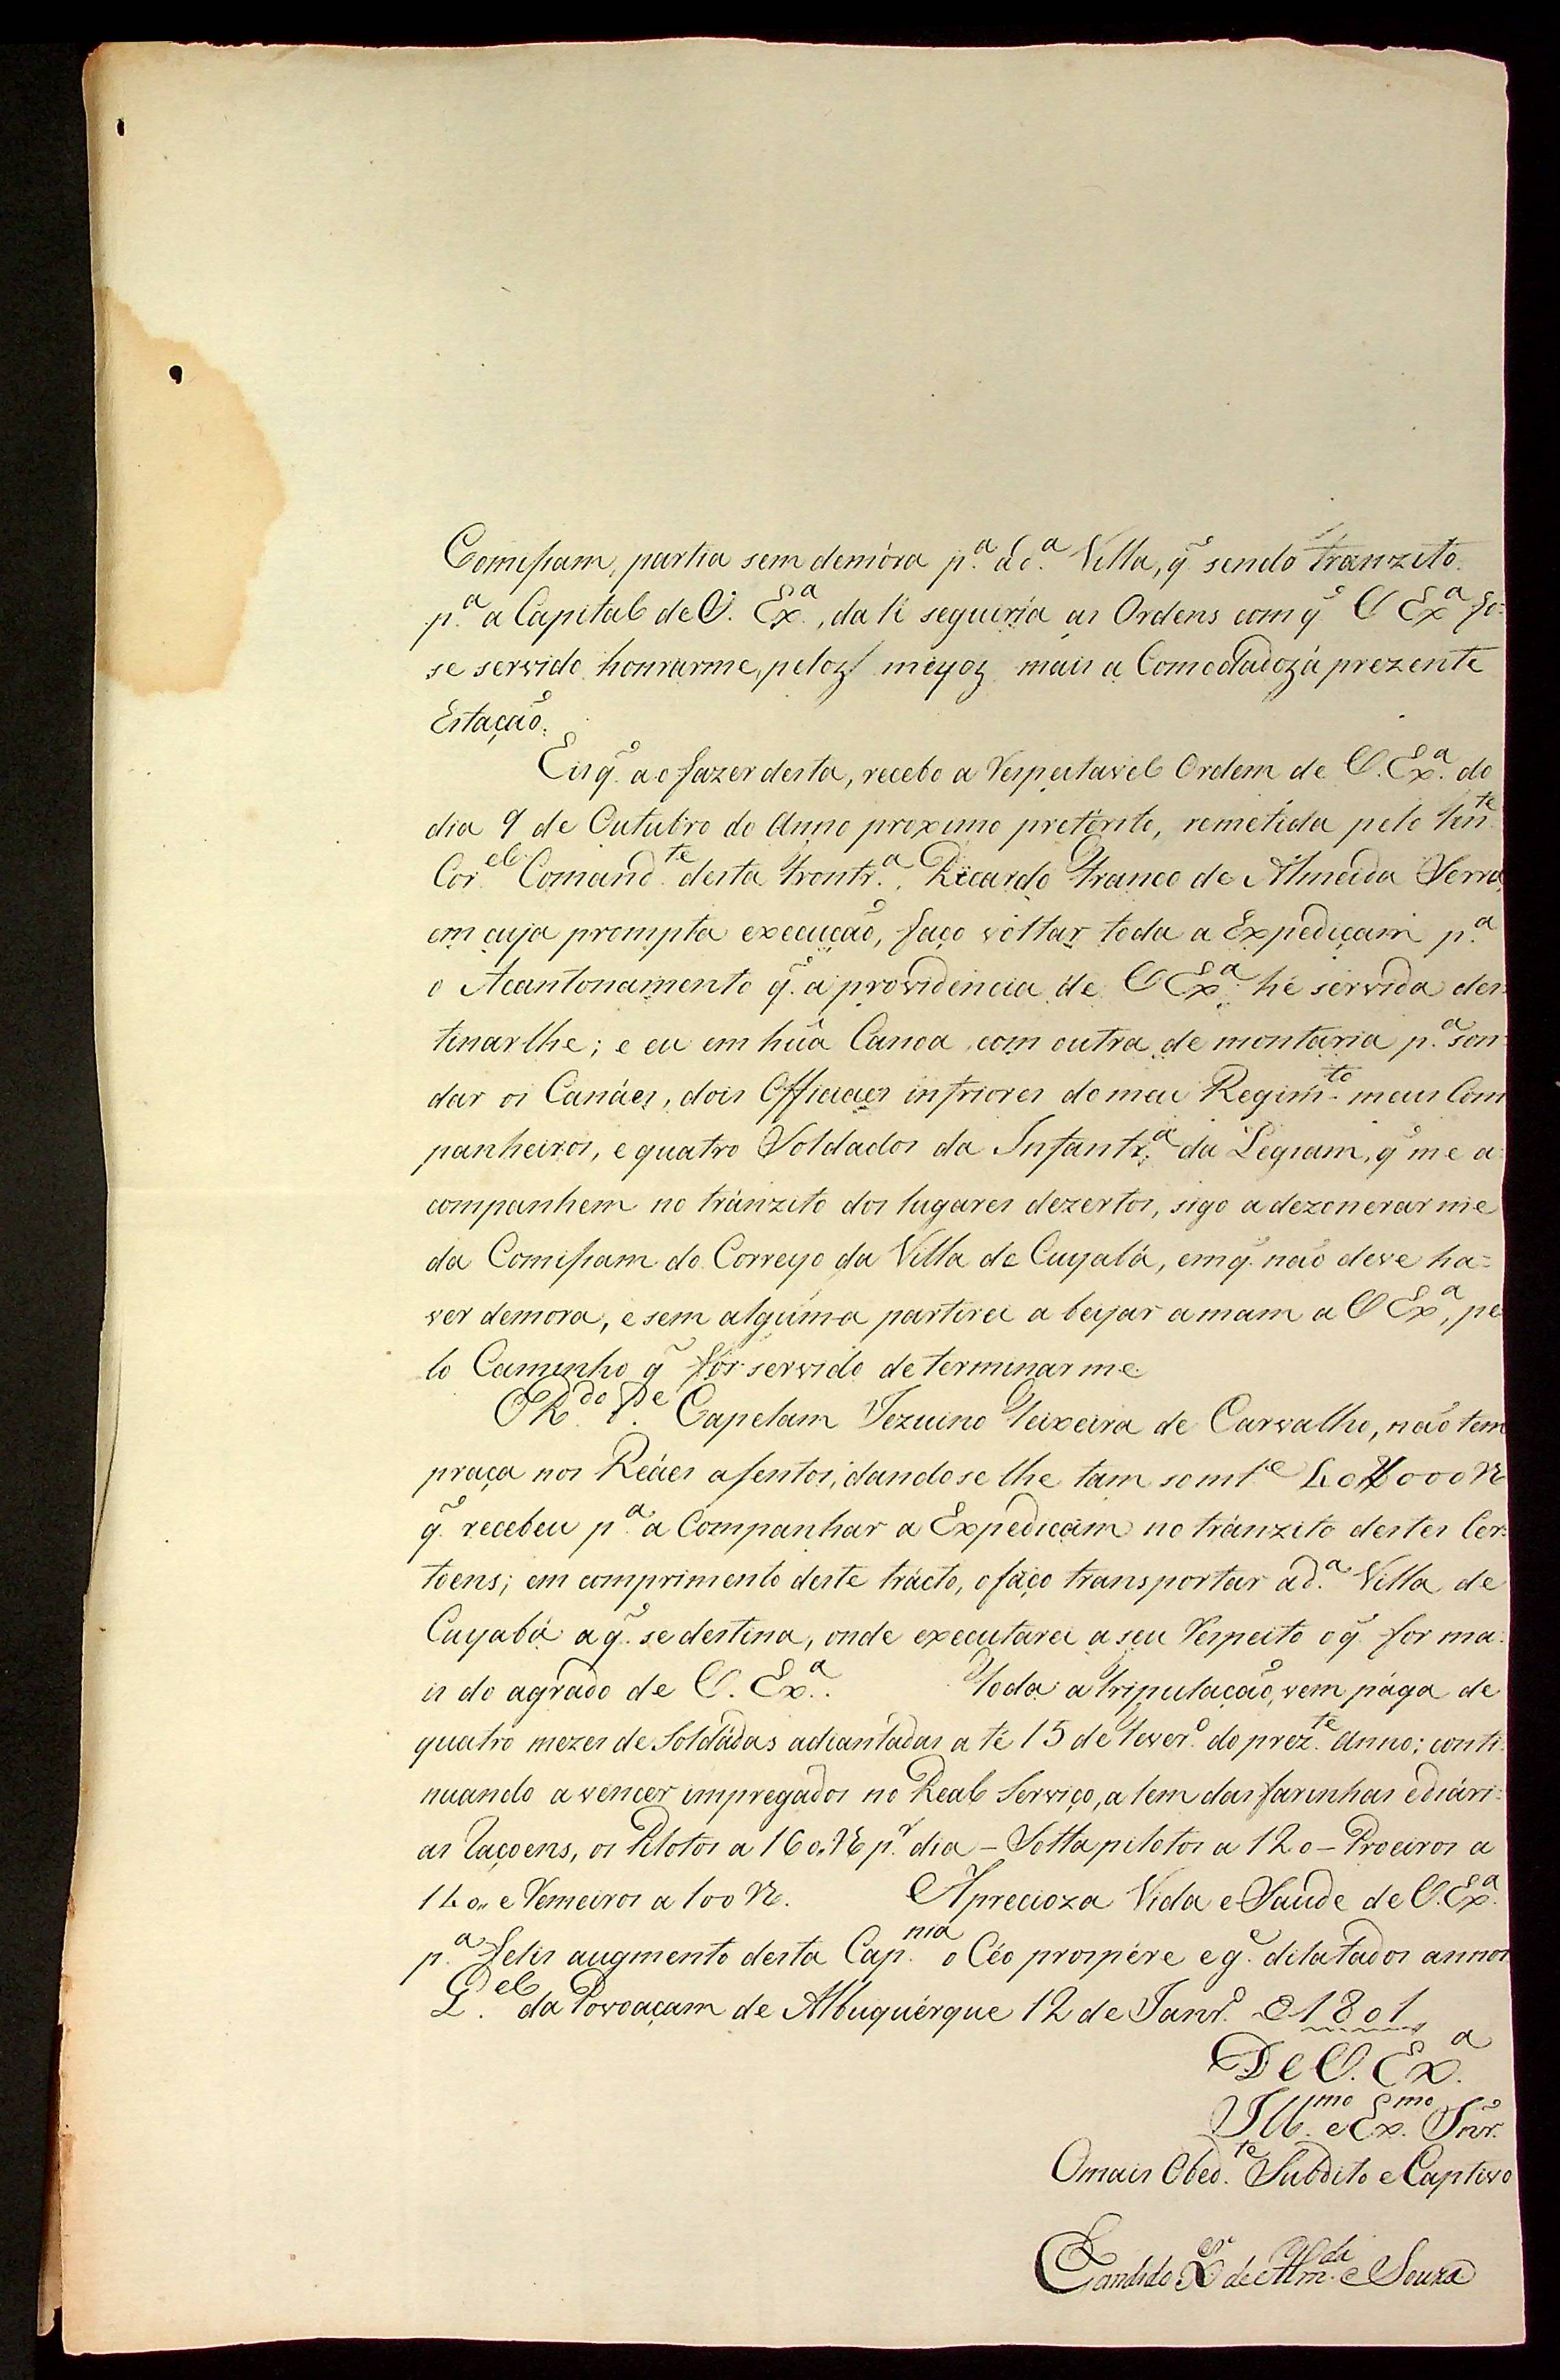 Comissam, partia sem demóra p.ª a d.ª Villa, q̃ sendo tranzito
p.ª a Capital de V. Ex.ª, da li seguiria as Ordens com q̃ V Exª fo-
se servido honrarme, pelos meyos mais a Comodados á prezente
Estação.
Eis q̃ ao fazer desta, recebo a Respeitavel Ordem de V. Ex.ª do
dia 9 de Outubro do Anno proximo pretérito, remetida pelo Ten.te
Cor.el Comand.te desta Frontr.ª, Ricardo Franco de Almeida Serra,
em cuja prompta execução, faço voltar toda a Expediçam p.ª
o Acantonamento q̃ a providencia de V Exª. hé servida des-
tinarlhe; e eu em hũa Canoa com outra de montaria p.ª son-
dar os Canáes, dois Officiaes infriores do meu Regim.to meus Com
panheiros, e quatro Soldados da Infantr.ª da Legiam, q̃ me a-
companhem no tránzito dos lugares dezertos, sigo a dezonerar me
da Comissam do Correyo da Villa de Cuyabá, em q̃ não deve ha-
ver demora, e sem alguma partirei a beijar a mam a V Exª, pe
lo Caminho q̃ fôr servido determinar me.
O R.do P.e Capelam Jezuino Teixeira de Carvalho, não tem
praça nos Reáes asentos, dandose lhe tam somt.e 40$000 R
q̃ recebeu p.ª a Companhar a Expediçam no tránzito destes Cer-
toens; em comprimento deste trácto, o faço transportar a d.ª Villa de
Cuyabá a q̃ se destina, onde executarei a seu Respeito o q̃ for ma-
is do agrado de V. Ex.ª. Toda a tripulação, vem pága de
quatro mezes de Soldádas adiantadas a té 15 de Fever.o do prez.te Anno; conti-
nuando a vencer impregados no Real Serviço, a lem das farinhas e diári-
as raçoens, os Pilotos a 160 R p.r dia – Sotta pilotos a 120 – Proeiros a
140,, e Remeiros a 100 R. A precioza Vida e Saude de V. Ex.ª
p.ª felis augmento desta Cap.nia o Céo prospére e g.e dilatados annos
Q.el da Povoaçam de Albuquérque 12 de Janr.o de 1801
De V. Ex.ª
Ill.mo e Ex.mo Snr.
O mais Obed.te Subdito e Captivo
Candido X.er de Alm.da e Souza